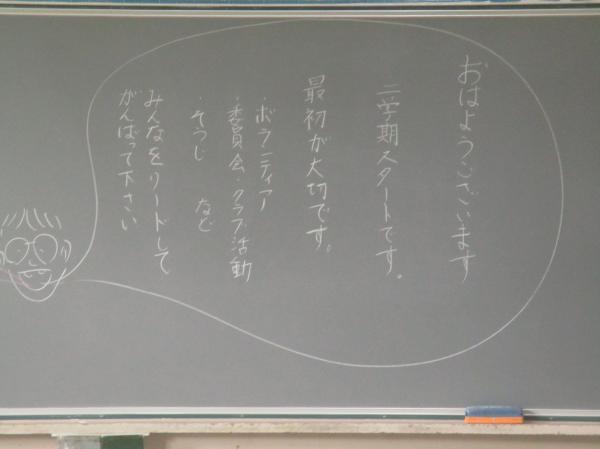 おはようございます
二学期スタートです。
最初が大切です。
・ボランティア
・委員会・クラブ活動
・そうじ など
みんなをリードして
がんばって下さい